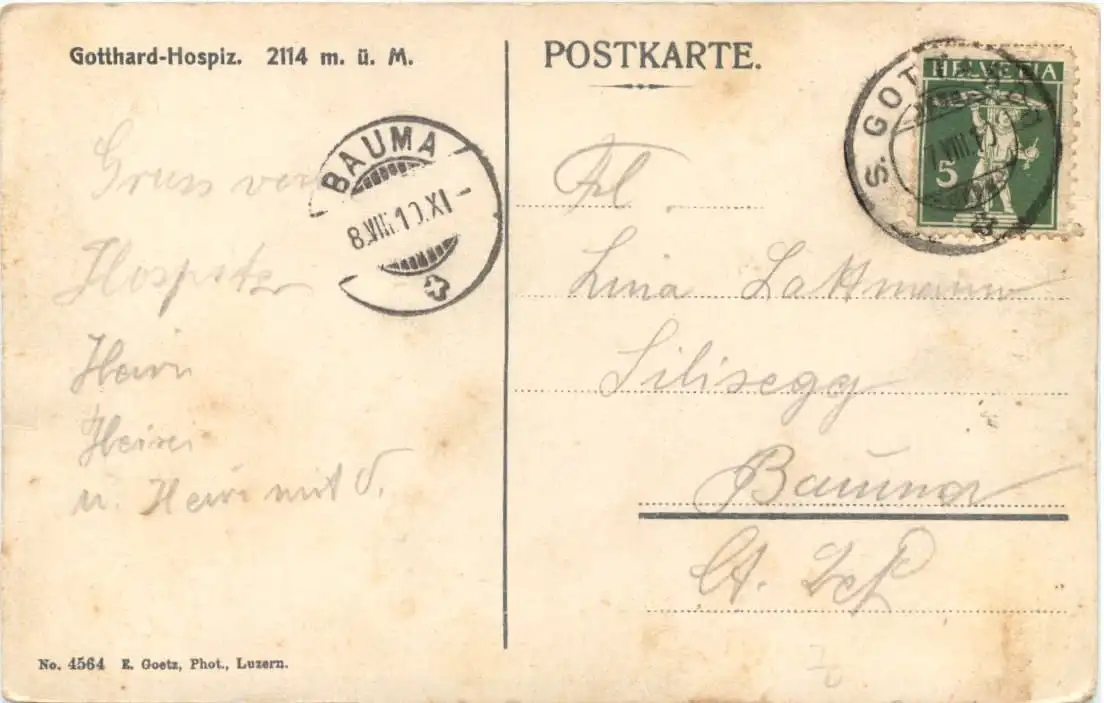 Gotthard-Hospiz. 2114 m. ü. M.
POSTKARTE.
HELVETIA
5
S. GOTTHARD
7.VIII.10
BAUMA
8.VIII.10.XI-
Gruss vom
Hospitz
Heiri
Heiri
u. Heiri mit V.
Frl.
Lina Lattmann
Silisegg
Bauma
Ct. Zch
No. 4564 E. Goetz, Phot., Luzern.